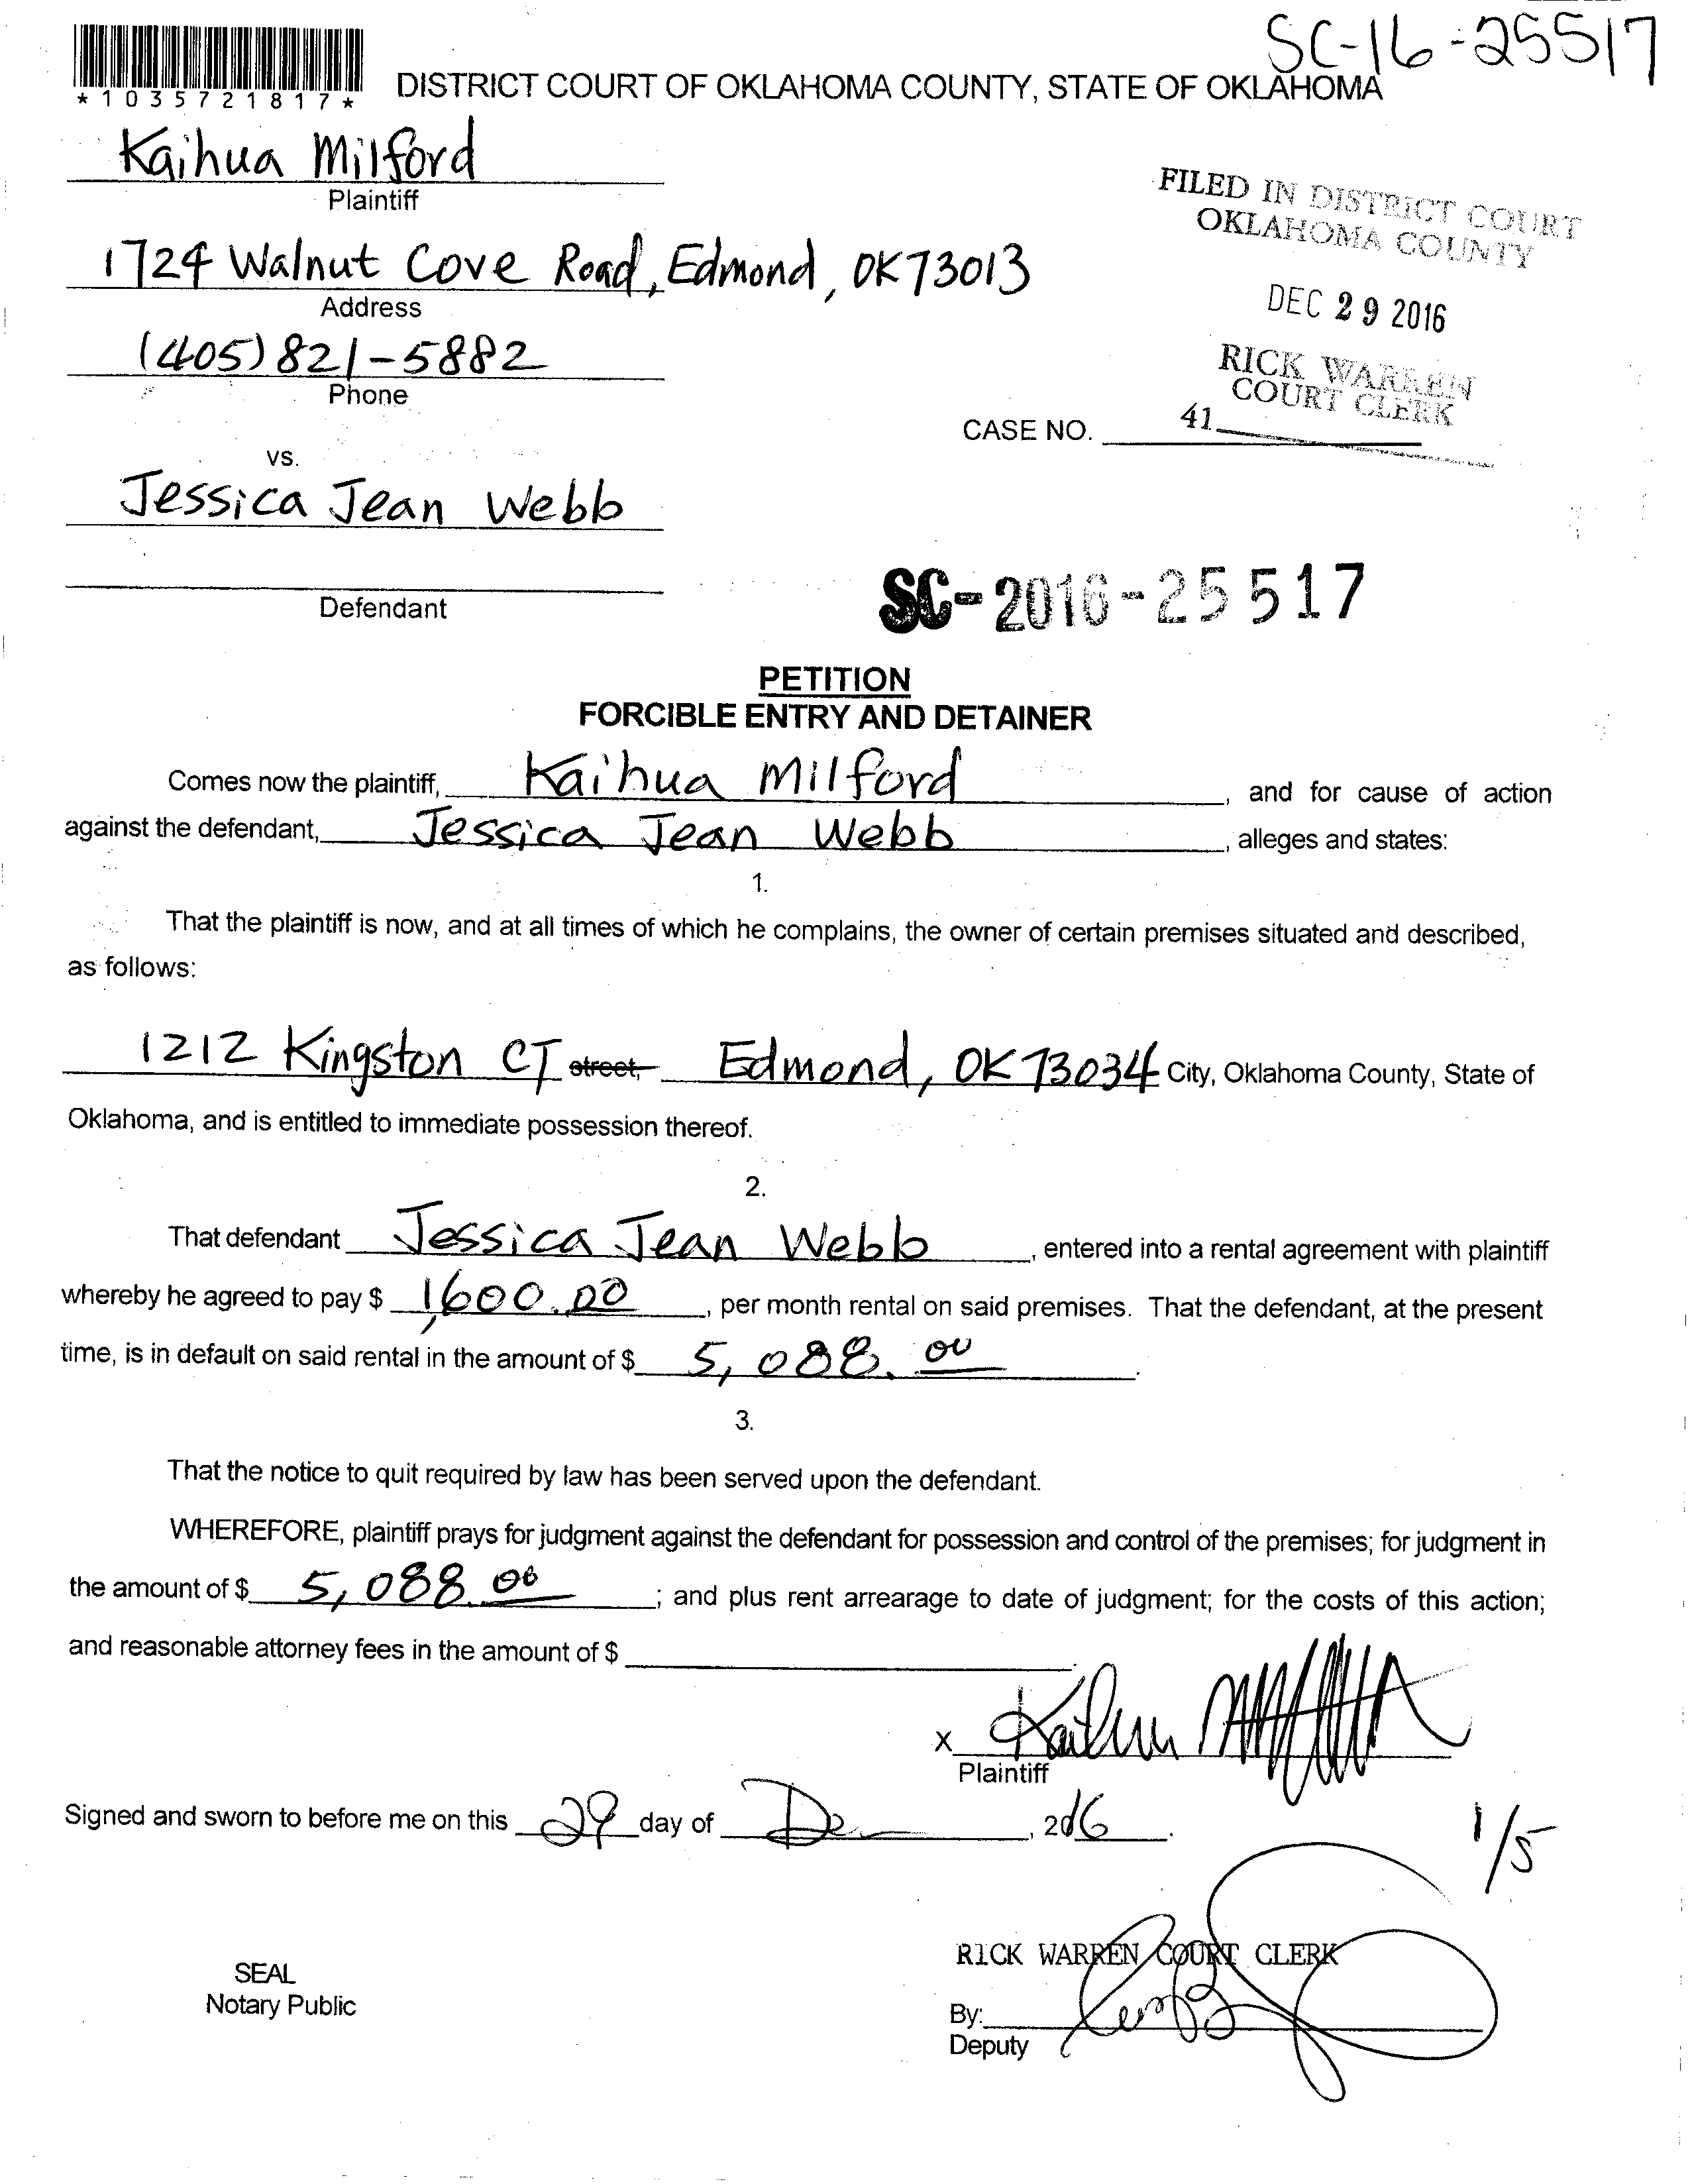 SC-16-25517
*1035721817*
DISTRICT COURT OF OKLAHOMA COUNTY, STATE OF OKLAHOMA
Kaihua Milford
Plaintiff
FILED IN DISTRICT COURT
OKLAHOMA COUNTY
1724 Walnut Cove Road, Edmond, OK 73013
Address
DEC 29 2016
(405) 821-5882
Phone
RICK WARREN
COURT CLERK
CASE NO. 41
VS.
Jessica Jean Webb
Defendant
SC-2016-25517
PETITION
FORCIBLE ENTRY AND DETAINER
Comes now the plaintiff, Kaihua Milford, and for cause of action
against the defendant, Jessica Jean Webb, alleges and states:
1.
That the plaintiff is now, and at all times of which he complains, the owner of certain premises situated and described,
as follows:
1212 Kingston CT street, Edmond, OK 73034 City, Oklahoma County, State of
Oklahoma, and is entitled to immediate possession thereof.
2.
That defendant Jessica Jean Webb, entered into a rental agreement with plaintiff
whereby he agreed to pay $ 1,600.00, per month rental on said premises. That the defendant, at the present
time, is in default on said rental in the amount of $ 5,088.00.
3.
That the notice to quit required by law has been served upon the defendant.
WHEREFORE, plaintiff prays for judgment against the defendant for possession and control of the premises; for judgment in
the amount of $ 5,088.00; and plus rent arrearage to date of judgment; for the costs of this action;
and reasonable attorney fees in the amount of $
X
Plaintiff
Signed and sworn to before me on this 29 day of De, 2016.
1/5
RICK WARREN COURT CLERK
SEAL
Notary Public
By:
Deputy